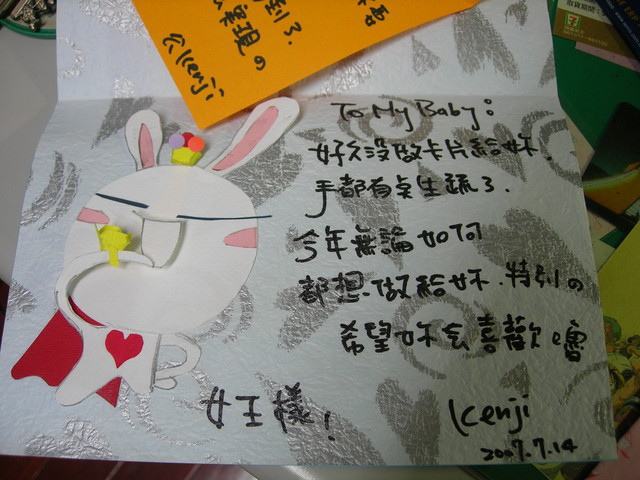 到了.
实現の
公Kenji
To My Baby:
好久沒做卡片給妳.
手都有点生疏了.
今年無論如何
都想做給妳.特別の
希望妳会喜歡嚕
女王様!
Kenji
2007.7.14